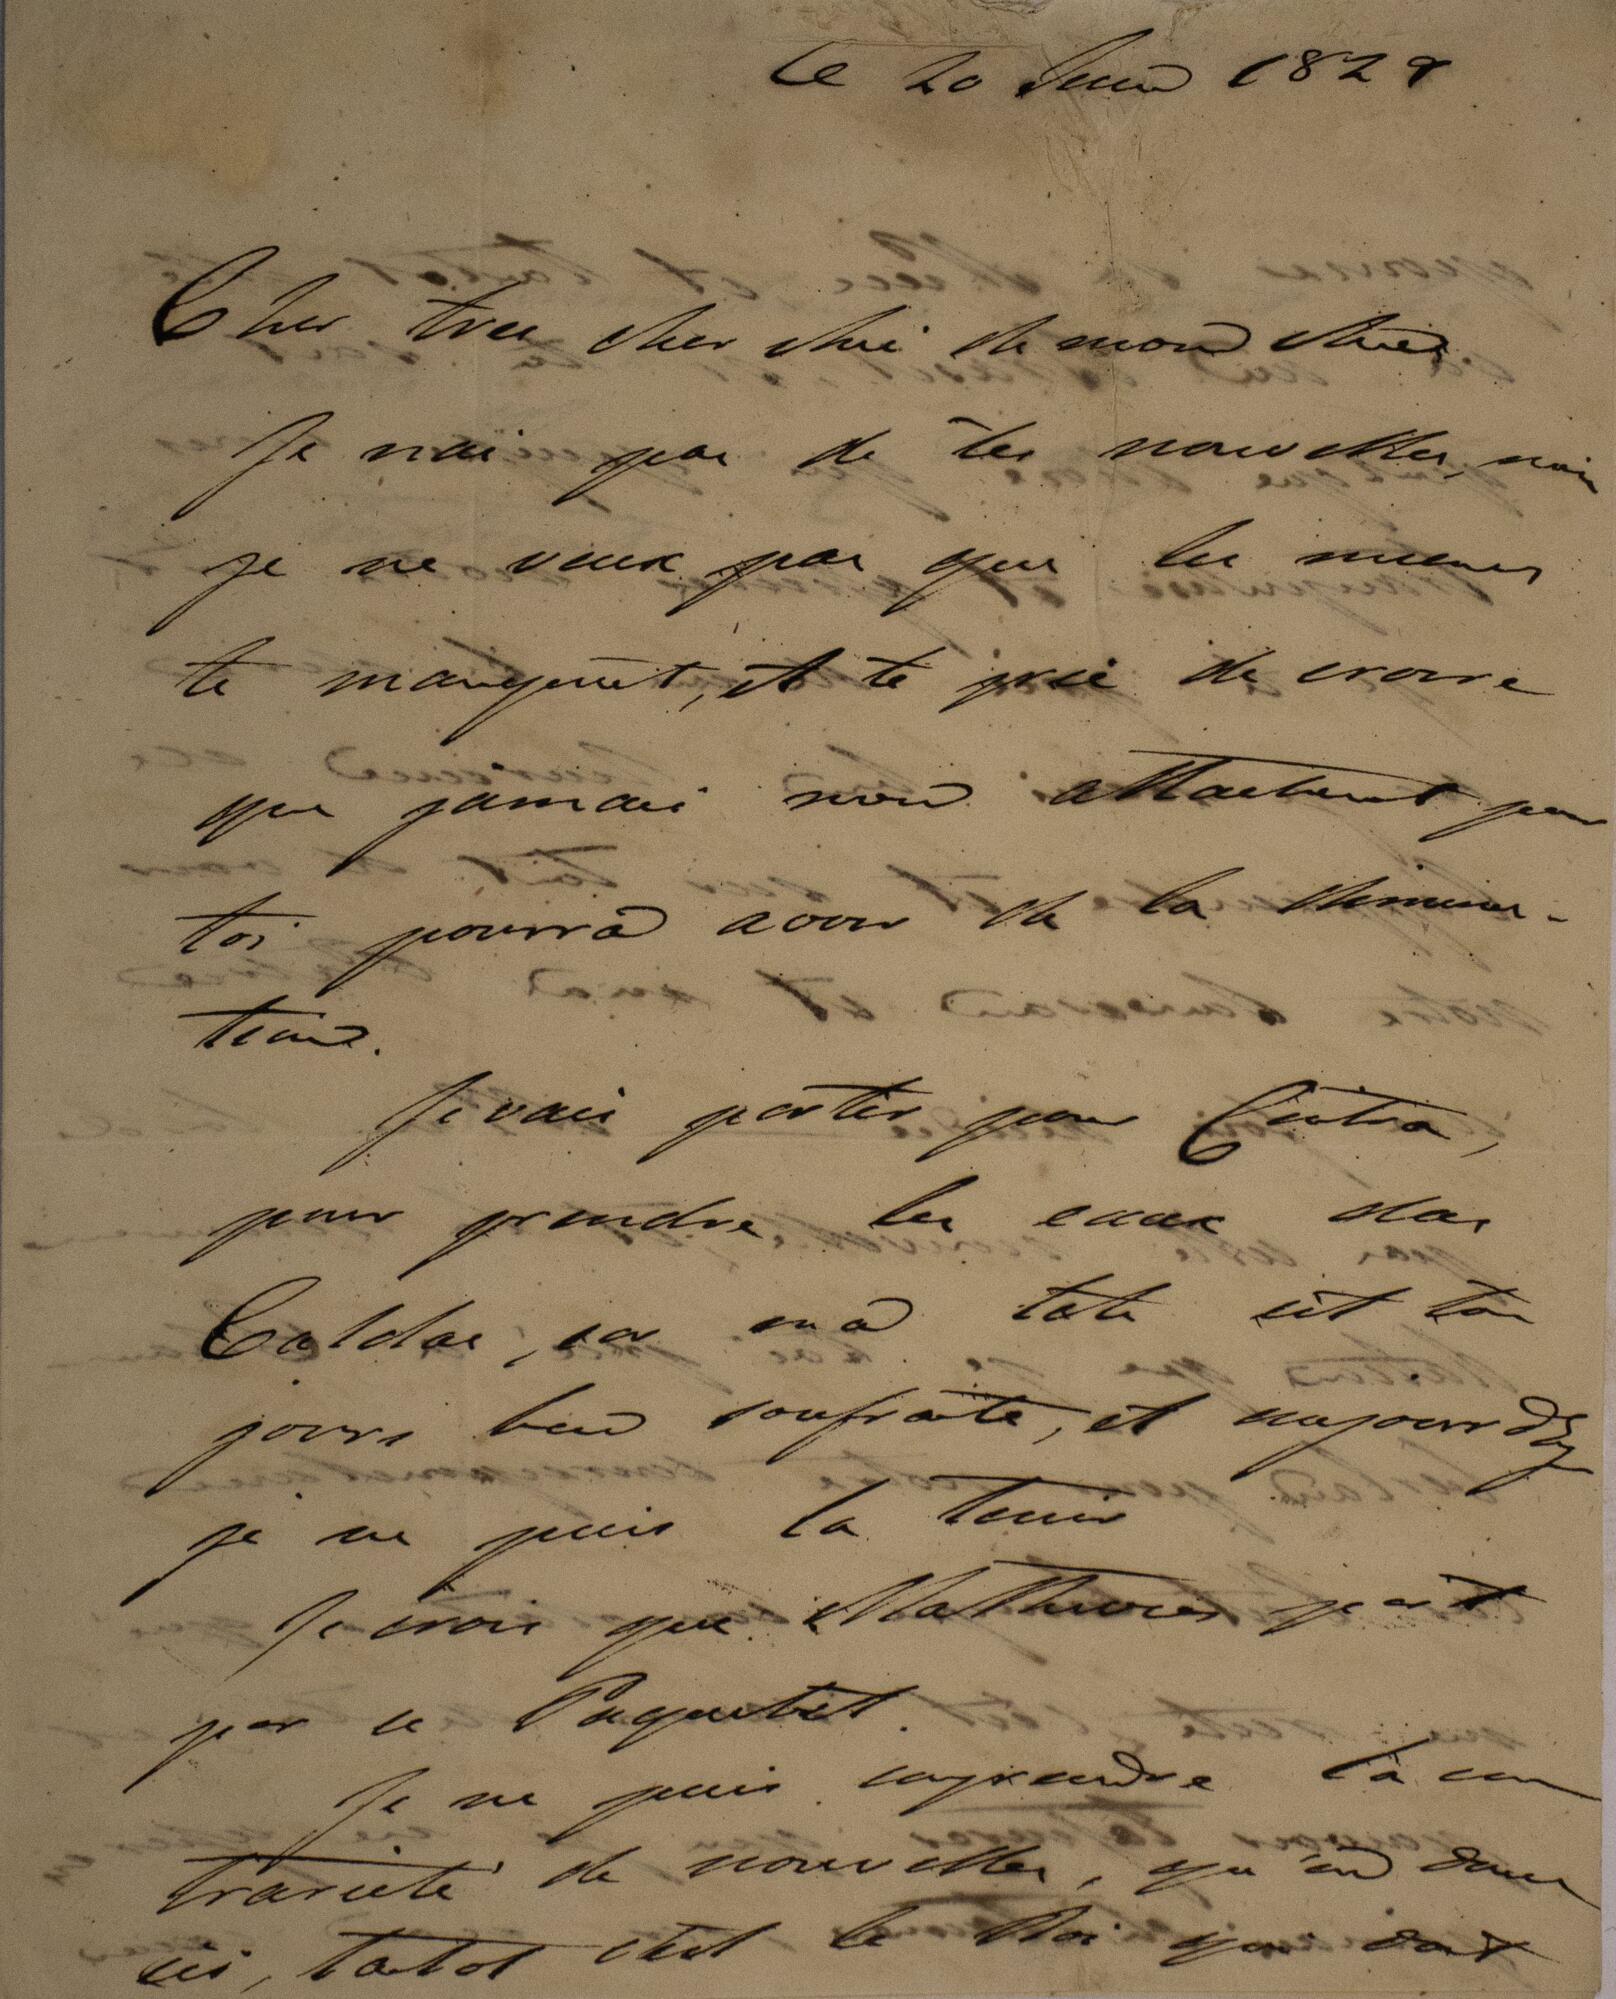 le 20 Juin 1829
Cher tres cher ami de mon
Je nai pas de tes nouvelles, mais
je ne veux pas que les mienes
te manquent, et te prie de croire
que jamais mon attachemt pour
toi pourra avoir de la diminu-
tion.
Je vais partir pour Cintra,
pour prendre les eaux das
Caldas, car ma tete est tou
jours bien soufrante, et aujourdhy
je ne puis la tenir
Je crois que part
par ce Paquebot.
Je ne puis conprendre la con
trarieté de nouvelles, qu'on done
ici, tatot c'est le Roi qui doit